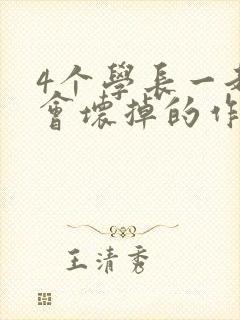 4个學長一起
會壞掉的作
王清秀